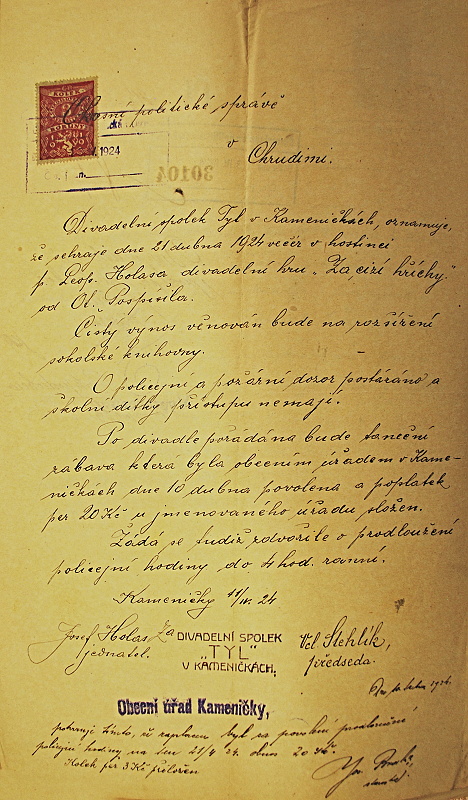 KOLEK
KORUNY
Okresní politické správě
1924
v
Chrudimi.
30104
Divadelní spolek Tyl v Kameničkách, oznamuje,
že sehraje dne 21 dubna 1924 večer v hostinci
p. Leop. Holasa divadelní hru „Za cizí hříchy"
od Ot. Pospíšila.
Čistý výnos věnován bude na rozšíření
sokolské knihovny.
O policejní a požární dozor postaráno a
školní dítky přístupu nemají.
Po divadle pořádána bude taneční
zábava která byla obecním úřadem v Kame-
ničkách dne 10 dubna povolena a poplatek
per 20 Kč u jmenovaného úřadu složen.
Žádá se tudíž zdvořile o prodloužení
policejní hodiny do 4 hod. ranní.
Kameničky 11/IV. 24
Josef Holas
jednatel.
Za DIVADELNÍ SPOLEK
„TYL"
V KAMENIČKÁCH.
Vel. Stehlík,
předseda.
Obecní úřad Kameničky,
potvrzuje tímto, že zaplacen byl za povolení prodloužení
policejní hodiny na den 21/4 24. obnos 20 Kč.
Kolek per 3 Kč přiložen